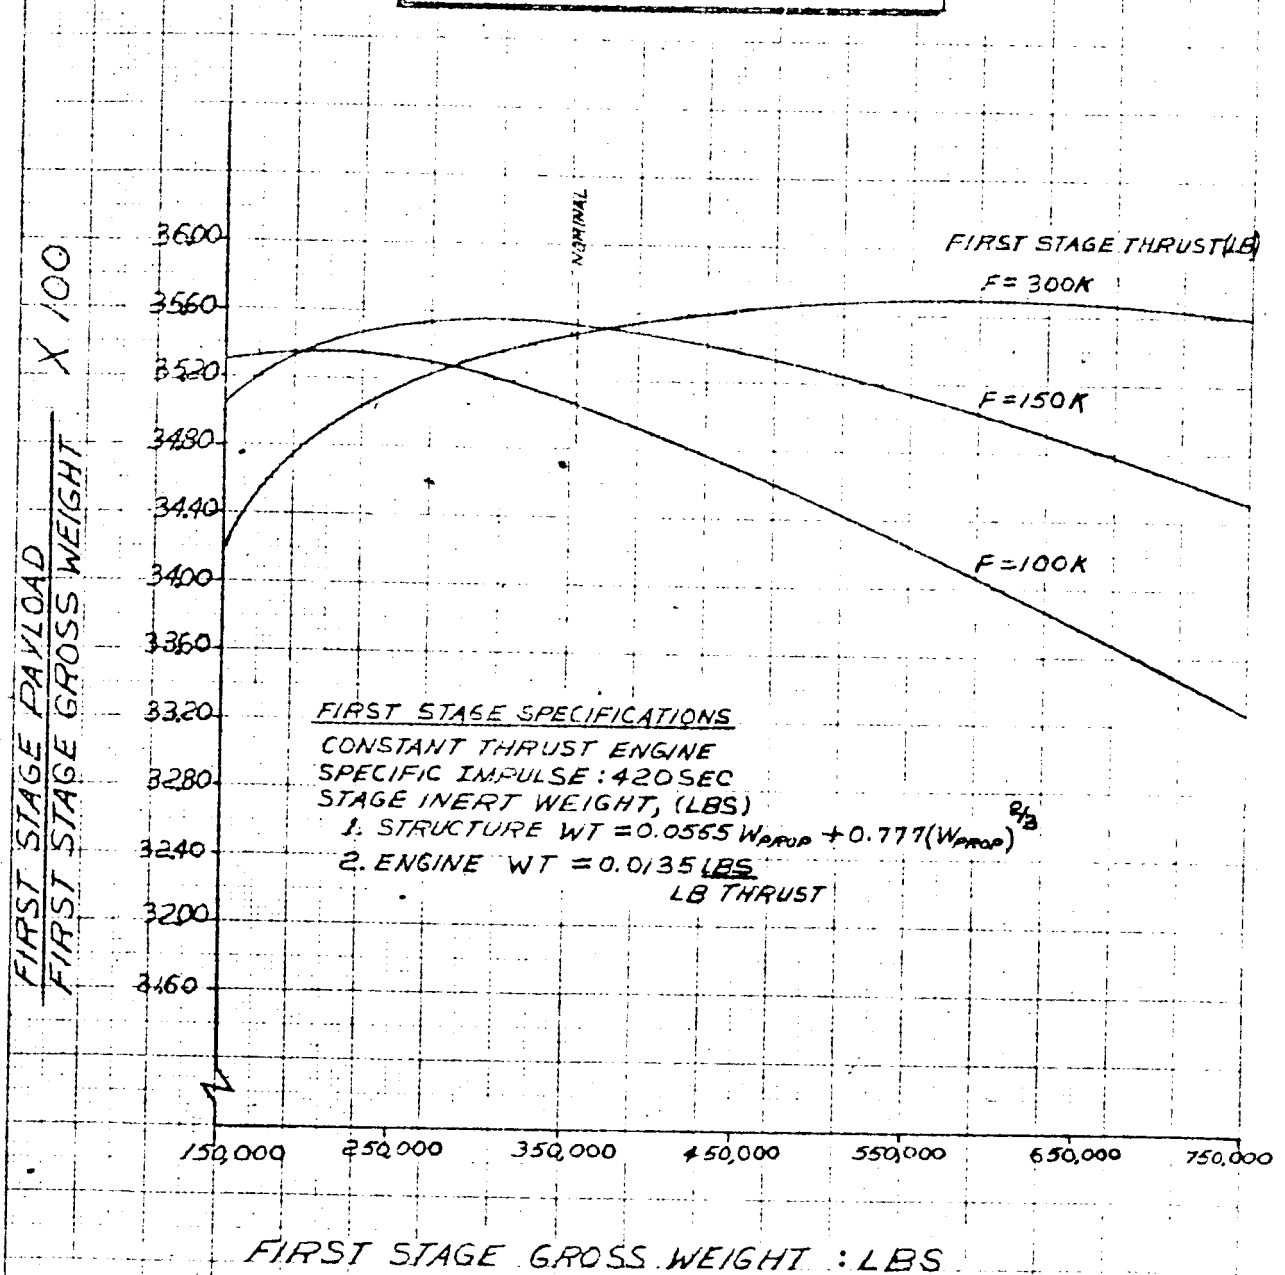 NOMINAL
FIRST STAGE THRUST (LB)
F= 300K
F=150K
F=100K
36.00
35.60
35.20
34.80
34.40
34.00
33.60
33.20
32.80
32.40
32.00
31.60
FIRST STAGE PAYLOAD
FIRST STAGE GROSS WEIGHT X 100
FIRST STAGE SPECIFICATIONS
CONSTANT THRUST ENGINE
SPECIFIC IMPULSE : 420 SEC
STAGE INERT WEIGHT, (LBS)
1. STRUCTURE WT = 0.0565 W_PROP + 0.777 (W_PROP)^2/3
2. ENGINE WT = 0.0135 LBS
LB THRUST
150,000 250,000 350,000 450,000 550,000 650,000 750,000
FIRST STAGE GROSS WEIGHT : LBS